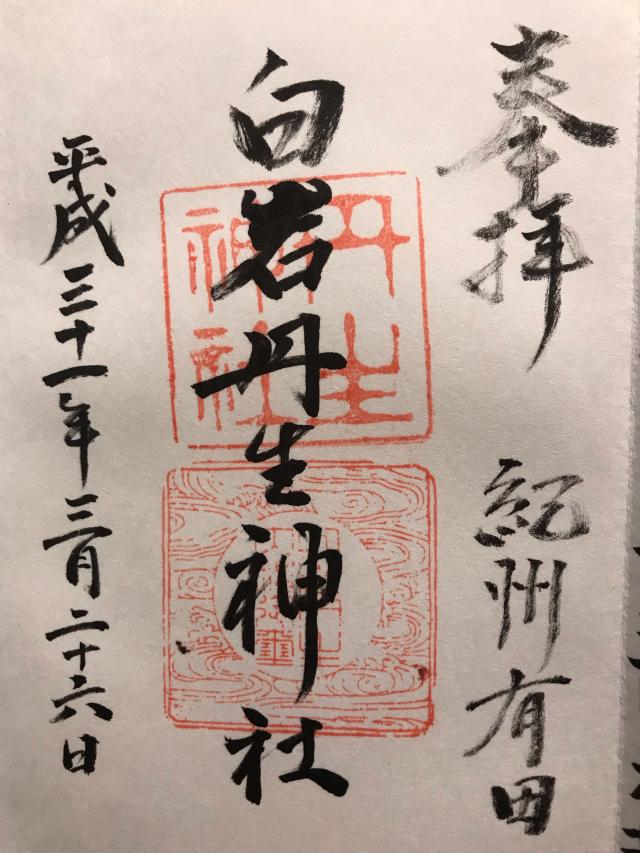 奉拝
紀州有田
白岩丹生神社
丹生
神社
平成三十一年三月二十六日